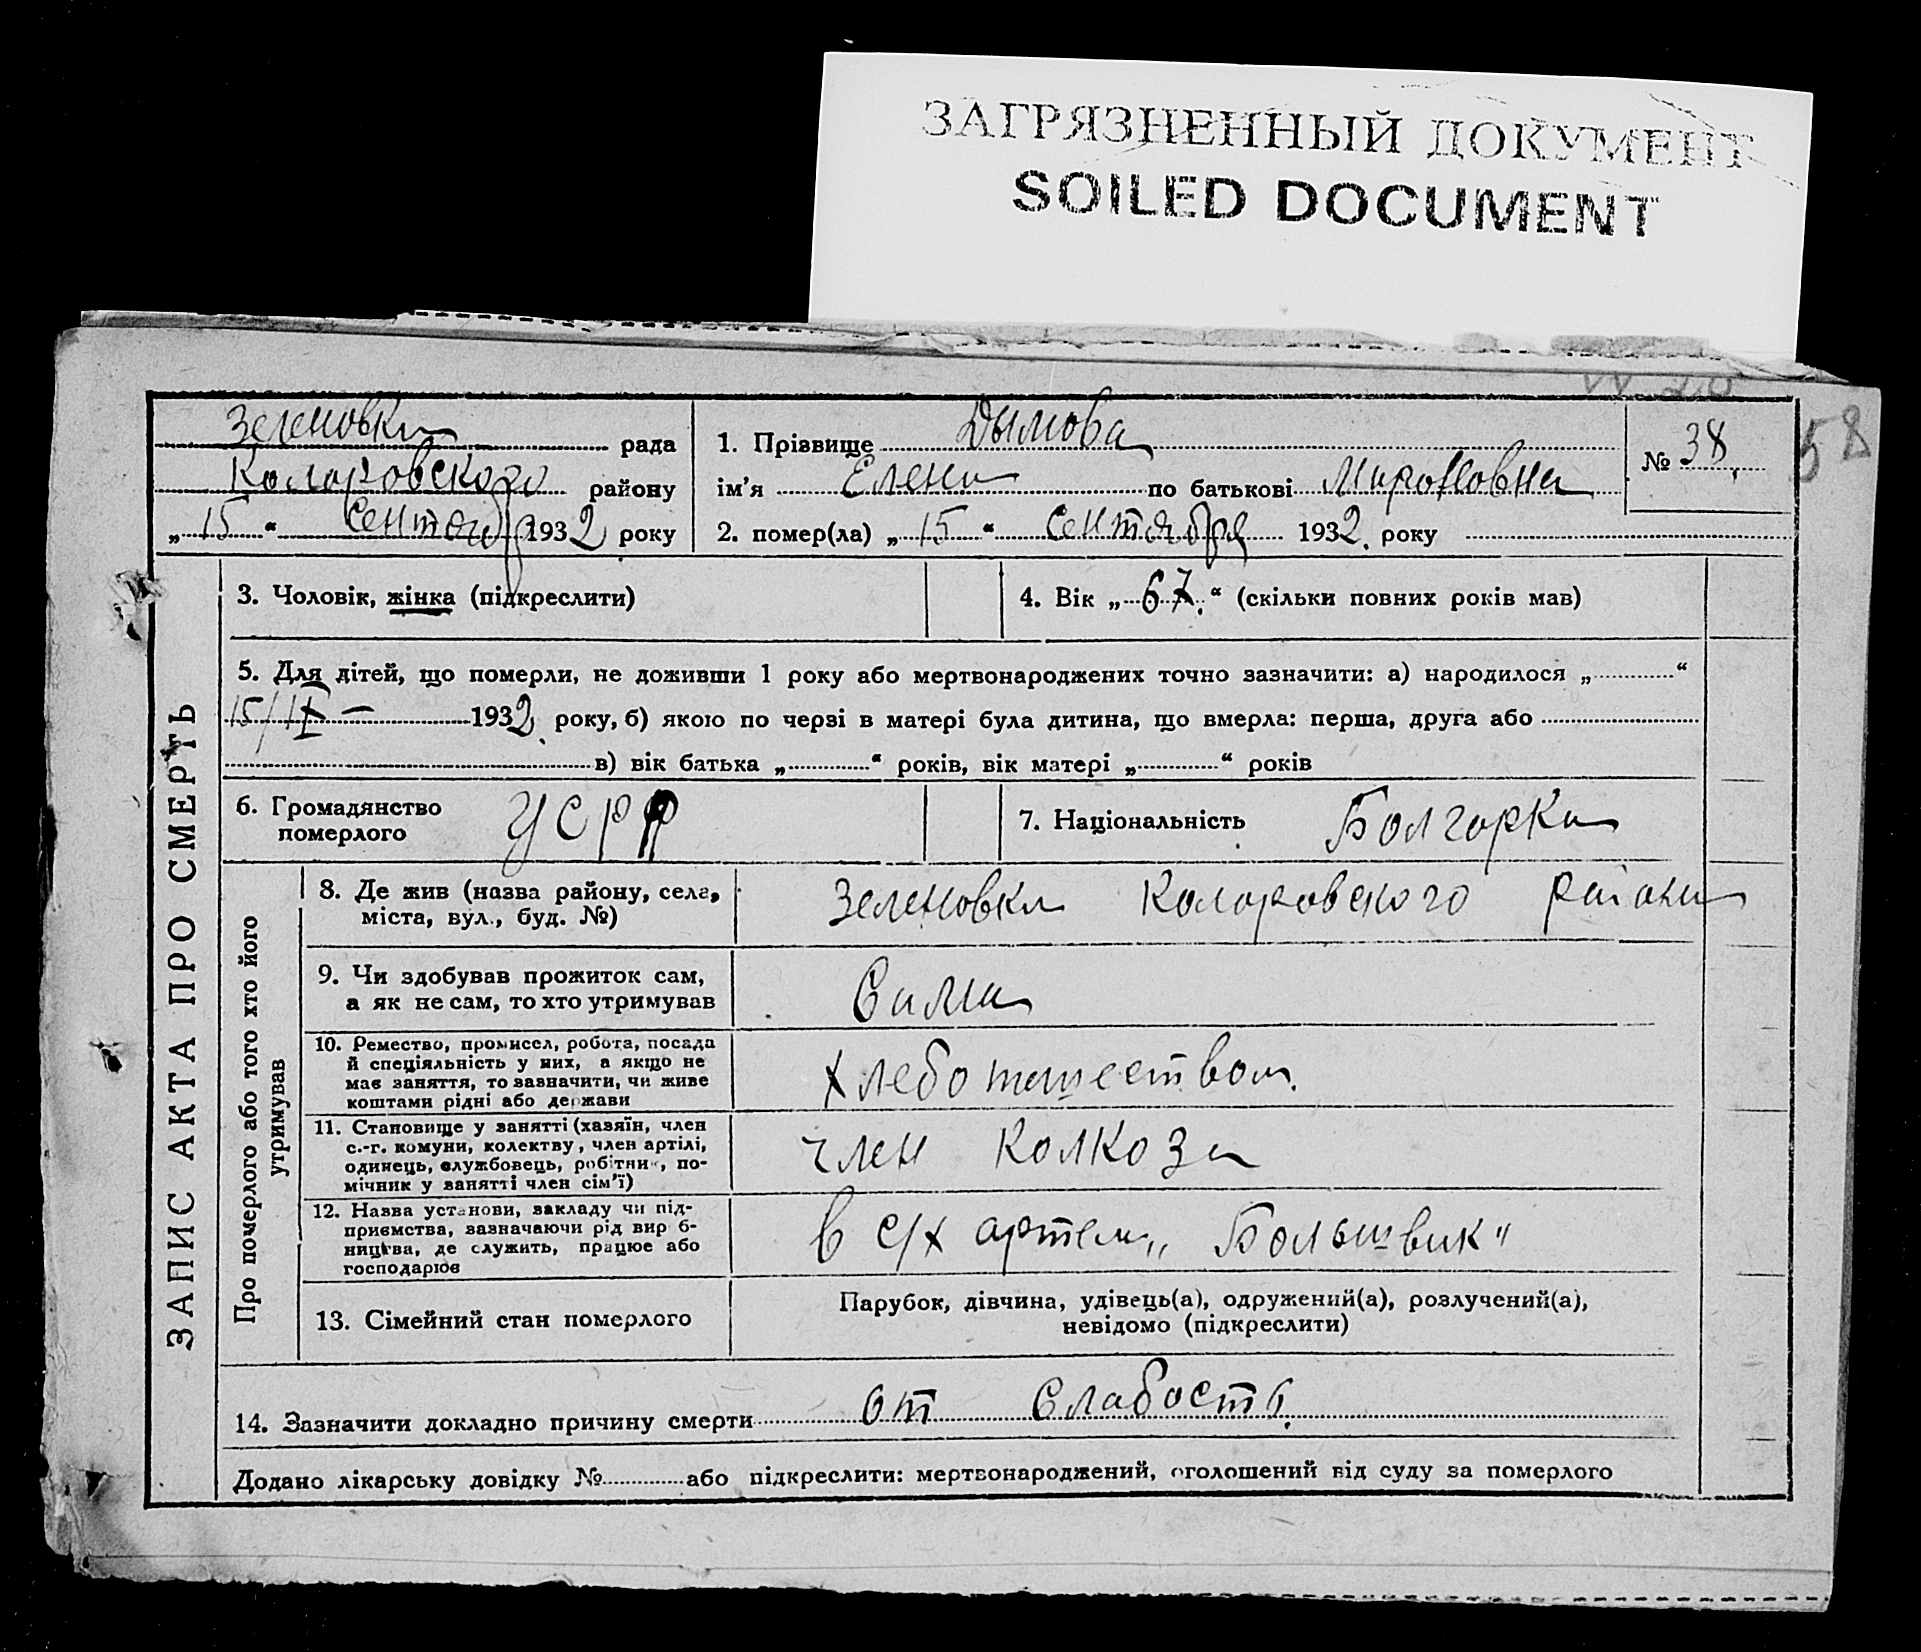 ЗАГРЯЗНЕННЫЙ ДОКУМЕНТ
SOILED DOCUMENT
58
Зеленовка рада
Коларовского району
„15“ сентября 1932 року
1. Прізвище Дымова
ім’я Елена по батькові Мироновна
2. помер(ла) „15“ сентября 1932. року
№ 38.
ЗАПИС АКТА ПРО СМЕРТЬ
3. Чоловік, жінка (підкреслити)
4. Вік „67.“ (скільки повних років мав)
5. Для дітей, що померли, не доживши 1 року або мертвонароджених точно зазначити: а) народилося „ “
15/IX – 1932 року, б) якою по черзі в матері була дитина, що вмерла: перша, друга або
в) вік батька „ “ років, вік матері „ “ років
6. Громадянство
померлого
УСРР
7. Національність Болгарка
Про померлого або того хто його
утримував
8. Де жив (назва району, села,
міста, вул., буд. №)
Зеленовка Коларовского района
9. Чи здобував прожиток сам,
а як не сам, то хто утримував
Сама
10. Ремество, промисел, робота, посада
й спеціяльність у них, а якщо не
має заняття, то зазначити, чи живе
коштами рідні або держави
11. Становище у занятті (хазяїн, член
с.-г. комуни, колектву, член артілі,
одинець, службовець, робітник, по-
мічник у занятті член сім’ї)
член колхоза
12. Назва установи, закладу чи під-
приємства, зазначаючи рід вироб-
ництва, де служить, працює або
господарює
в с/х артели „Большевик“
13. Сімейний стан померлого
Парубок, дівчина, удівець(а), одружений(а), розлучений(а),
невідомо (підкреслити)
14. Зазначити докладно причину смерти от слабости.
Додано лікарську довідку № або підкреслити: мертвонароджений, оголошений від суду за померлого